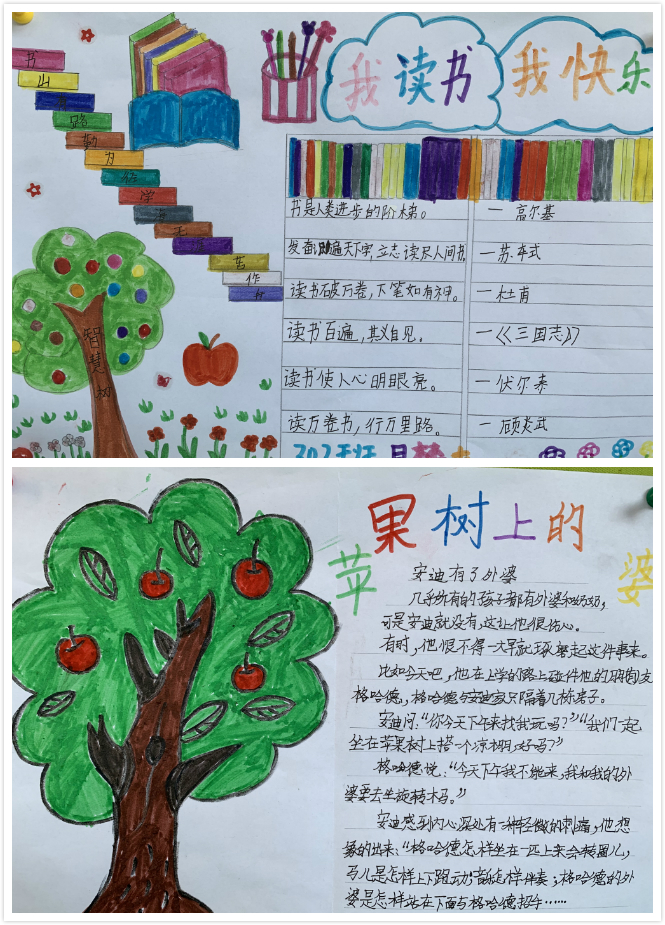 我读书 我快乐
书山有路勤为径学海无涯苦作舟
智慧树
书是人类进步的阶梯。 — 高尔基
发奋识遍天下字,立志读尽人间书 — 苏东坡
读书破万卷,下笔如有神。 — 杜甫
读书百遍,其义自见。 — 《三国志》
读书使人心明眼亮。 — 伏尔泰
读万卷书,行万里路。 — 顾炎武
苹果树上的
婆
安迪有了外婆
几乎所有的孩子都有外婆和奶奶,
可是安迪就没有,这让他很伤心。
有时,他恨不得一大早就琢磨起这件事来。
比如今天吧,他在上学的路上碰件他的朋友
格哈德,格哈德与安迪家只隔着几栋房子。
安迪问:“你今天下午来找我玩吗?”“我们一起
坐在苹果树上搭一个凉棚,好吗?”
格哈德说:“今天下午我不能来,我和我的外
婆要去坐旋转木马。”
安迪感到内心深处有一种轻微的刺痛,他想
象的出来:“格哈德怎样坐在一匹上来会转圈儿,
马儿是怎样上下跑动,音乐怎样伴奏;格哈德的外
婆是怎样站在下面与格哈德招手……